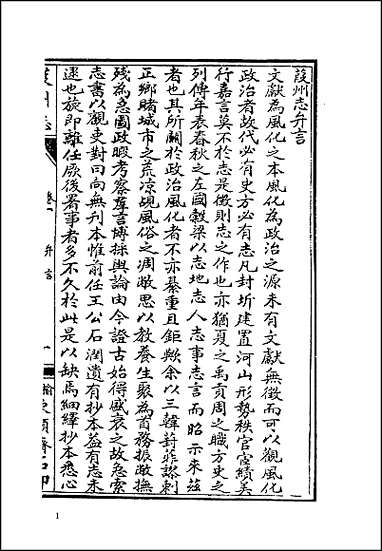 葭州志弁言
文獻為風化之本風化為政治之源未有文獻無徵而可以觀風化
政治者故代必有史方必有志凡封圻建置河山形勢秩官宦績美
行嘉言莫不於志是徵則志之作也亦猶夏之禹貢周之職方史之
列傳年表春秋之左國穀梁以志地志人志事志言而昭示來茲
者也其所關於政治風化者不亦綦重且鉅歟余以三韓葑菲謬刺
正鄉睹城市之荒凉覘風俗之凋敝思以教養生聚為首務振敝撫
殘為急圖政暇考察羣言博採輿論由今證古始得盛衰之故急索
志書以觀吏對曰向無刊本惟前任王公石潤遺有抄本葢有志未
逮也旋即離任厥後署事者多不久於此是以缺焉細繹抄本悉心
葭州志
卷一
弁言
一
1